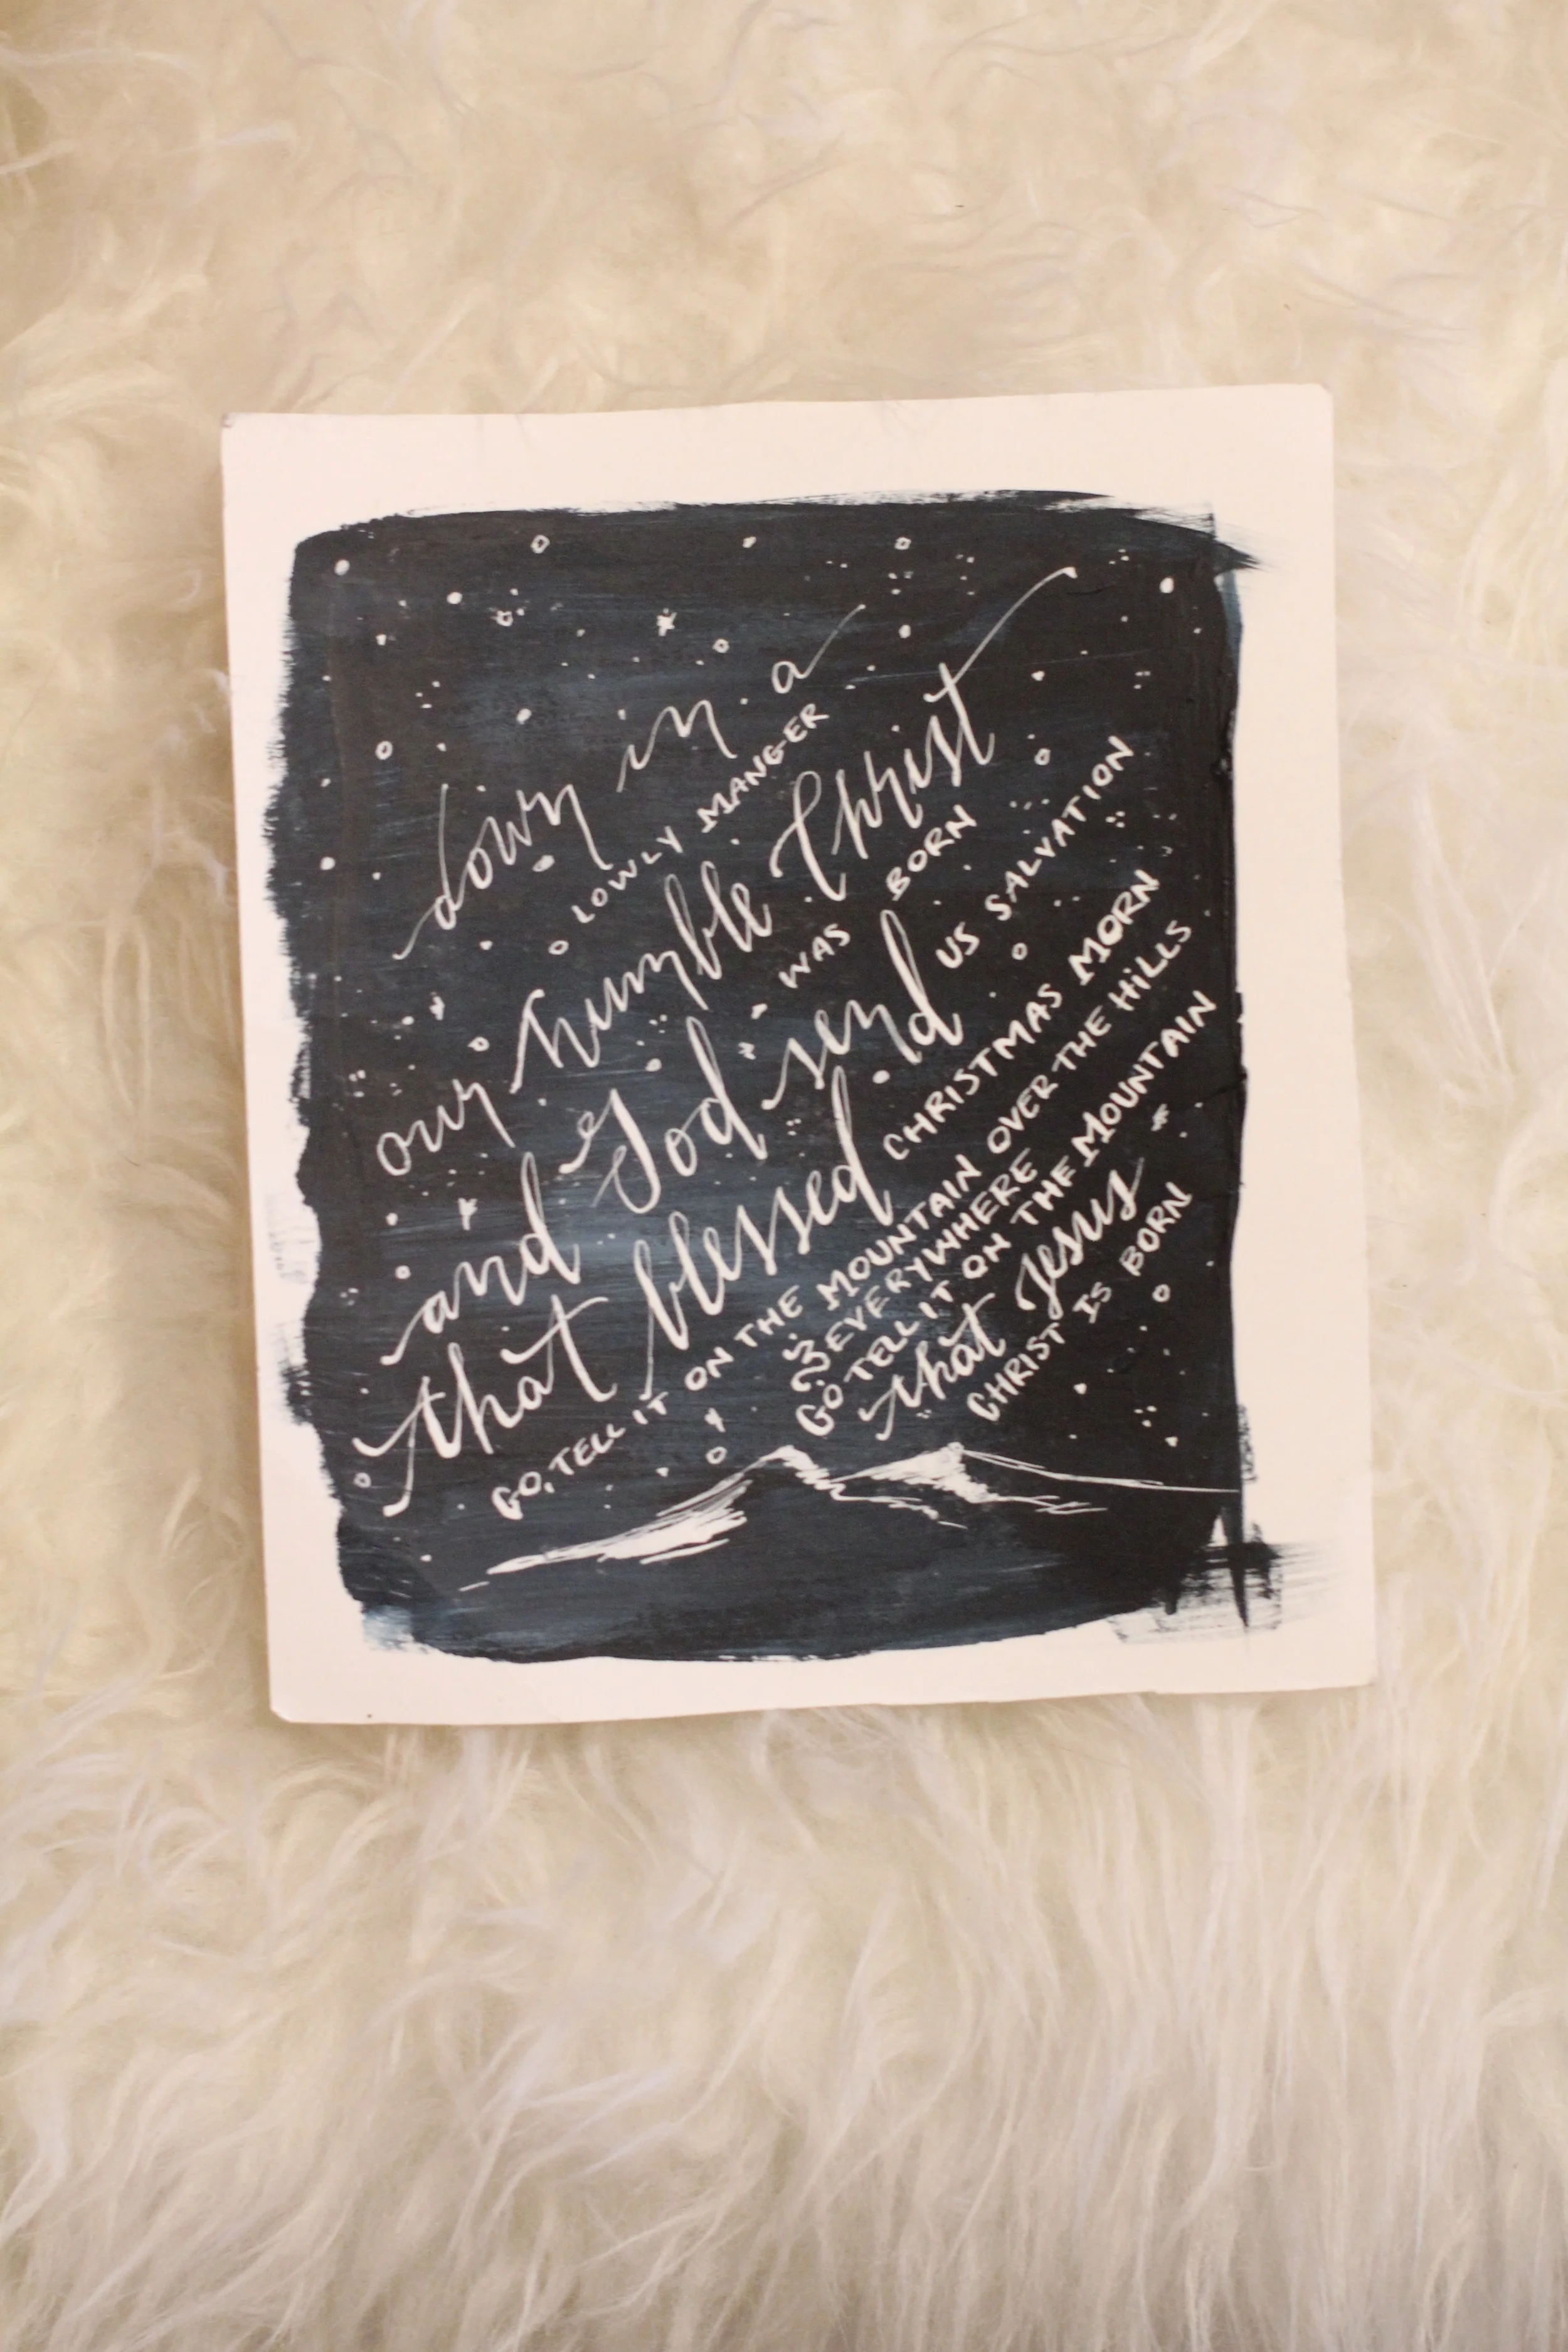 down in a
LOWLY MANGER
our humble Christ
WAS BORN
and God send
US SALVATION
that blessed
CHRISTMAS MORN
GO, TELL IT ON THE MOUNTAIN OVER THE HILLS
& EVERYWHERE
GO TELL IT ON THE MOUNTAIN
that Jesus
CHRIST IS BORN